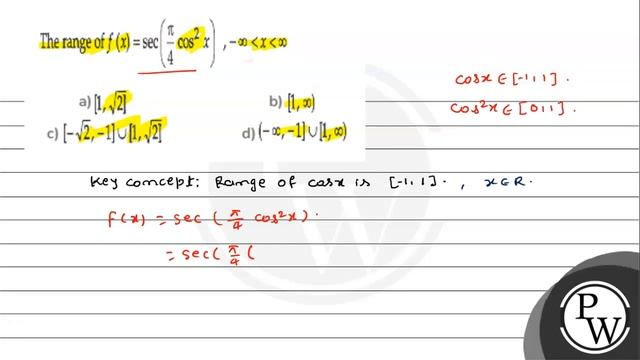 The range of f (x) = sec(π/4 cos² x) , -∞ < x < ∞
a) [1, √2]
b) [1, ∞)
c) [-√2, -1] ∪ [1, √2]
d) (-∞, -1] ∪ [1, ∞)
cosx ∈ [-1, 1] .
cos²x ∈ [0, 1] .
Key concept: Range of cosx is [-1, 1] . , x ∈ R.
f(x) = sec ( π/4 cos²x ) .
= sec ( π/4 (
P
W